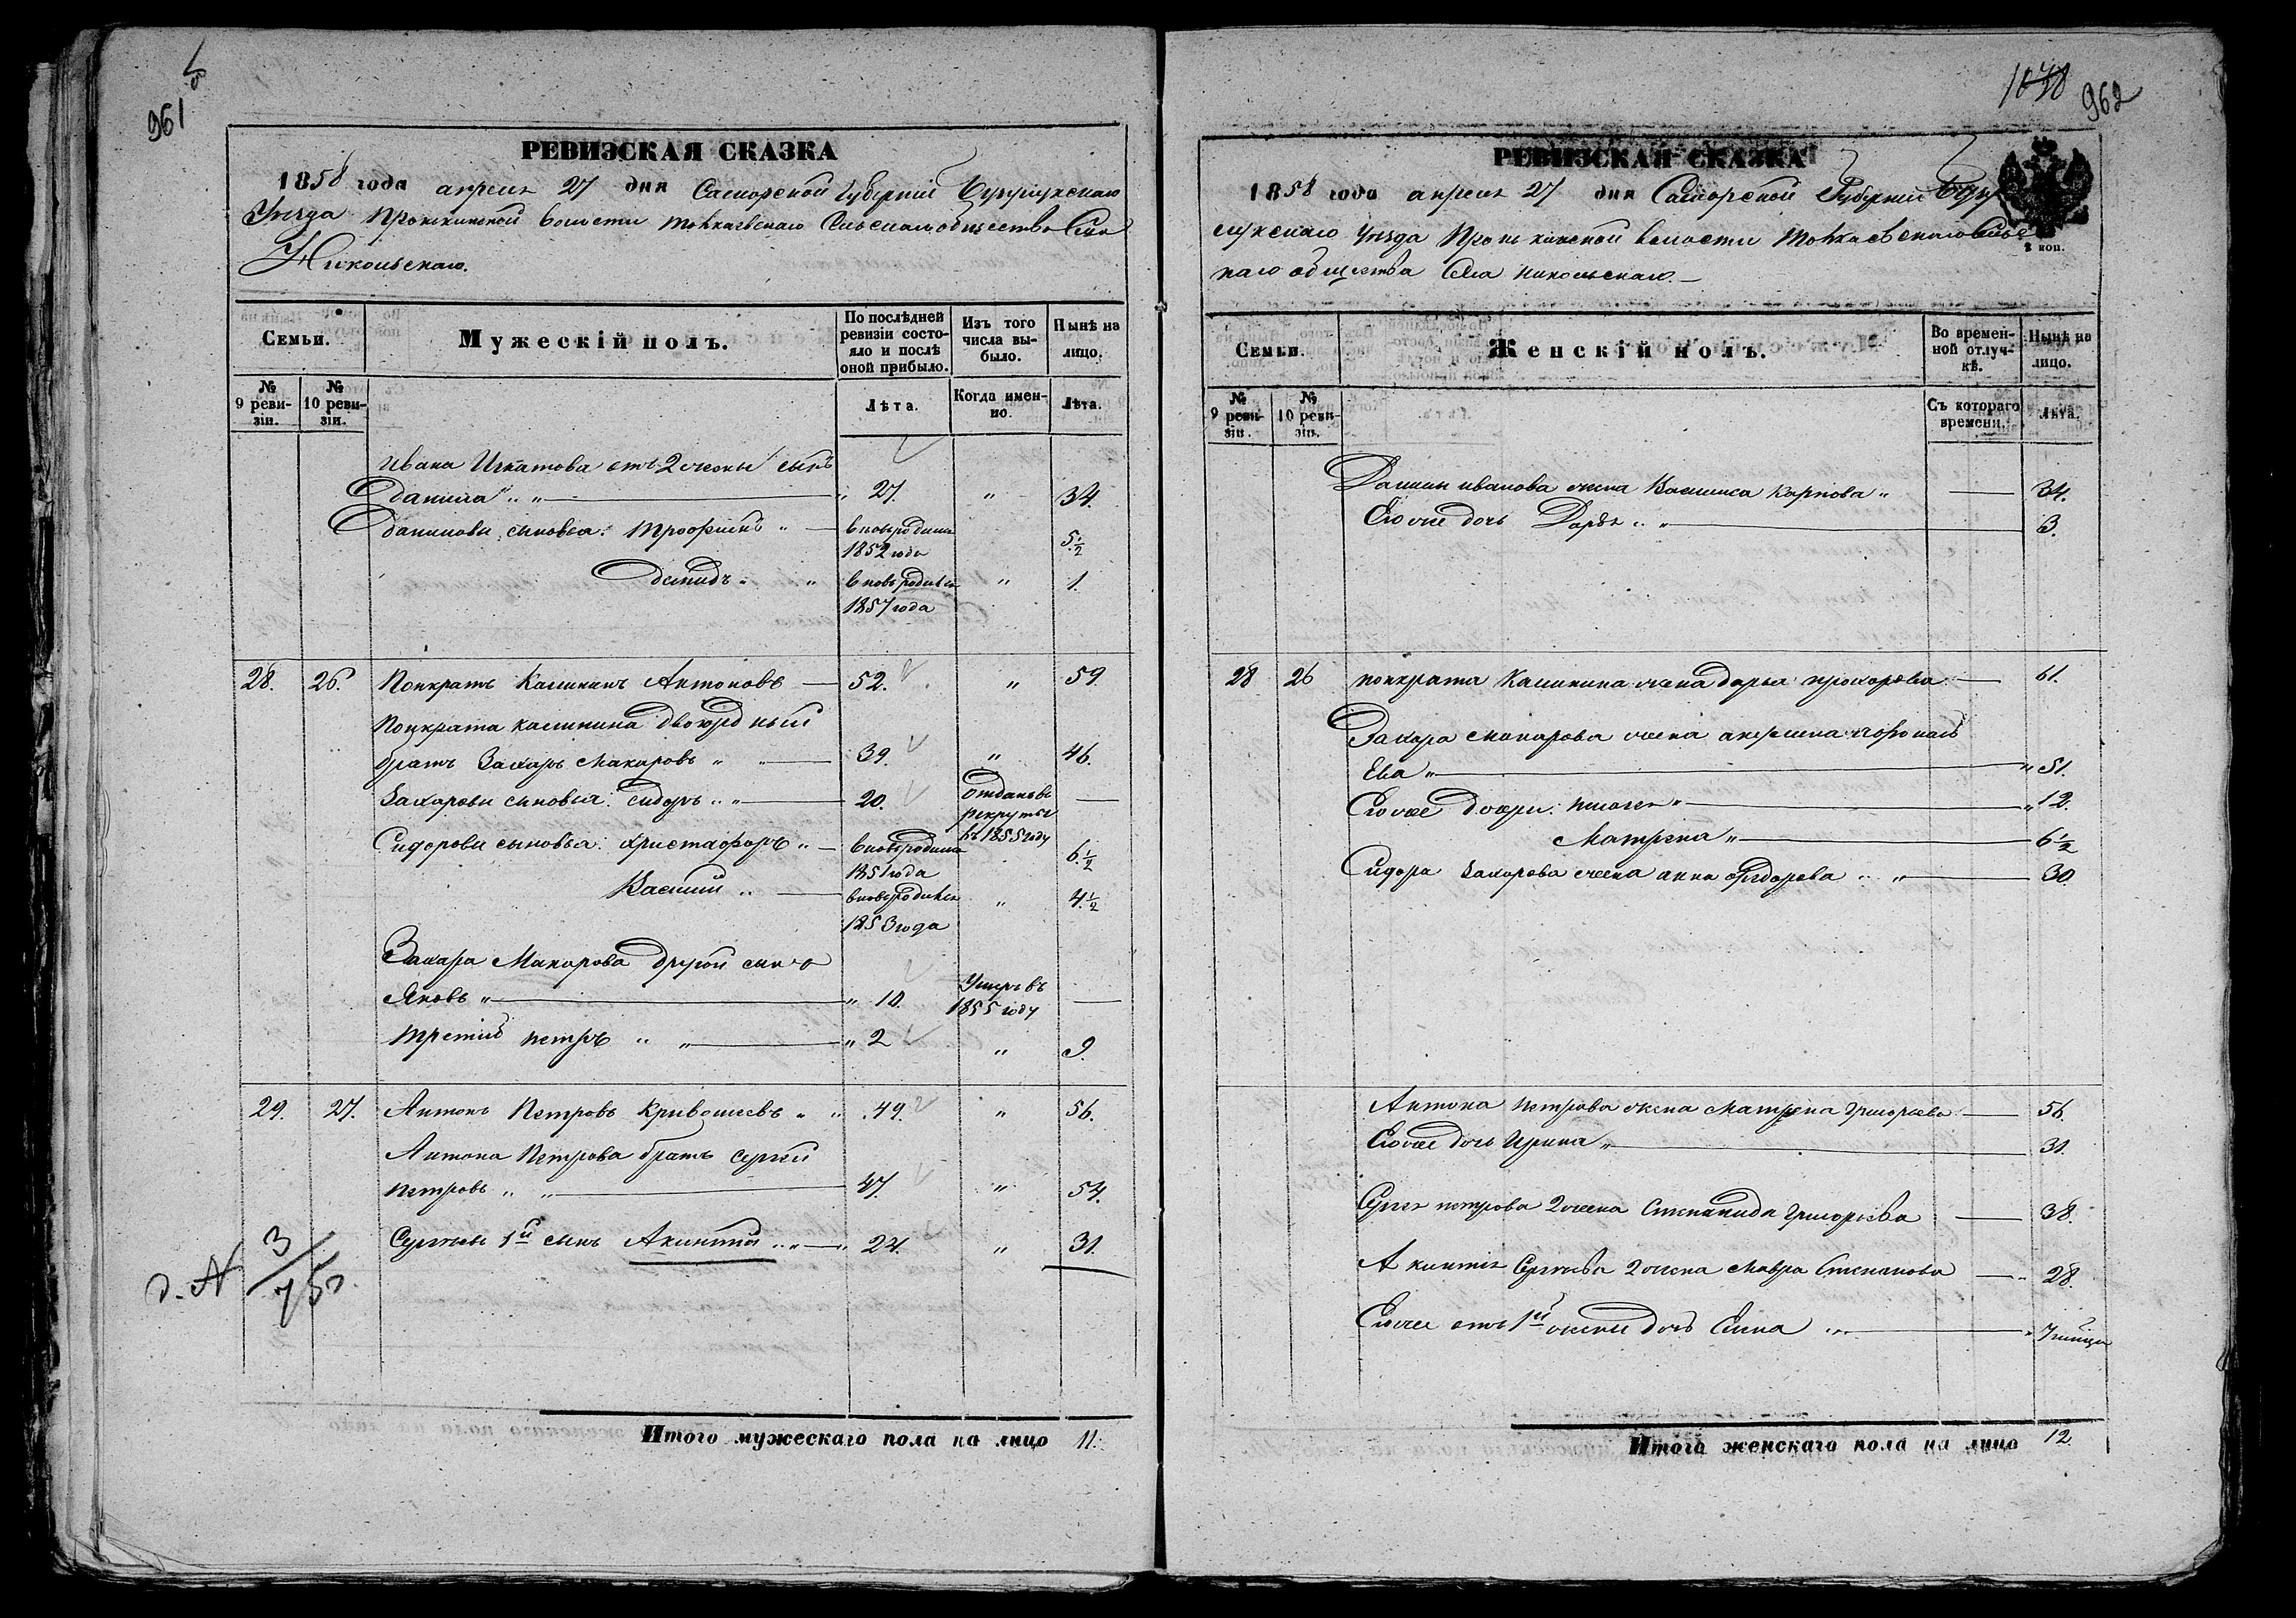 961
РЕВИЗСКАЯ СКАЗКА
1858 года апреля 27 дня Самарской Губернiи Бугурусланскаго
Уезда Пронькинской волости Токаевскаго Сельскаго общества Села
Никольскаго.
Семьи.
Мужескiй полъ.
По послѣдней ревизiи состояло и послѣ оной прибыло.
Изъ того числа выбыло.
Нынѣ на лицо.
№ 9 ревизiи.
№ 10 ревизiи.
Лѣта.
Когда именно.
Лѣта.
Ивана Игнатова отъ 2 жены сынъ
Данила " " 27. " 34.
Данилови сыновья: Трофимъ " вновь родился 1852 года 5 1/2
Демидъ " " вновь родился 1857 года " 1.
28. 26. Понкратъ Калининъ Антоновъ 52. " 59.
Понкрата Калинина двоюродный
братъ Захаръ Макаровъ " " 39. " 46.
Захарови сыновья: Сидоръ " " 20. отданъ въ рекруты въ 1855 году —
Сидорови сыновья: Христофоръ " вновь родился 1851 года 6 1/2
Василий " вновь родился 1853 года " 4 1/2
Захара Макарова другой сынъ
Яковъ " " 10. Умеръ въ 1855 году —
Третий Петръ " " " 2 " 9.
29. 27. Антонъ Петровъ Кривошеевъ " " 49. " 56.
Антона Петрова братъ Сергей
Петровъ " " 47. " 54.
Сергеевъ 1й сынъ Акинтий " " 24. " 31.
д. № 3/75
Итого мужескаго пола на лицо 11.
962
РЕВИЗСКАЯ СКАЗКА
1858 года апреля 27 дня Самарской Губернiи Бугу
русланскаго Уезда Пронькинской волости Токаевскаго Сельс
каго общества Села Никольскаго. —
2 коп.
Семьи.
Женскiй полъ.
Во временной отлучкѣ.
Нынѣ на лицо.
№ 9 ревизiи.
№ 10 ревизiи.
Съ котораго времени.
Лѣта.
Данилы Иванова жена Василиса Карпова " 34.
Его же дочь Дарья " " 3.
28 26 Понкрата Калинина жена Дарья Прохорова 61.
Захара Макарова жена
Ева " " 51.
Его же дочери: " " 12.
Матрена " 6 1/2
Сидора Захарова жена Анна Федорова " " 30.
Антона Петрова жена Матрена Григорьева 56.
Его же дочь Ирина " 31.
Сергея Петрова 2 жена Степанида Григорьева 38.
Акинтия Сергеева 2 жена Мавра Степанова " 28.
Его же отъ 1й жены дочь Елена " " 7
Итого женскаго пола на лицо 12.